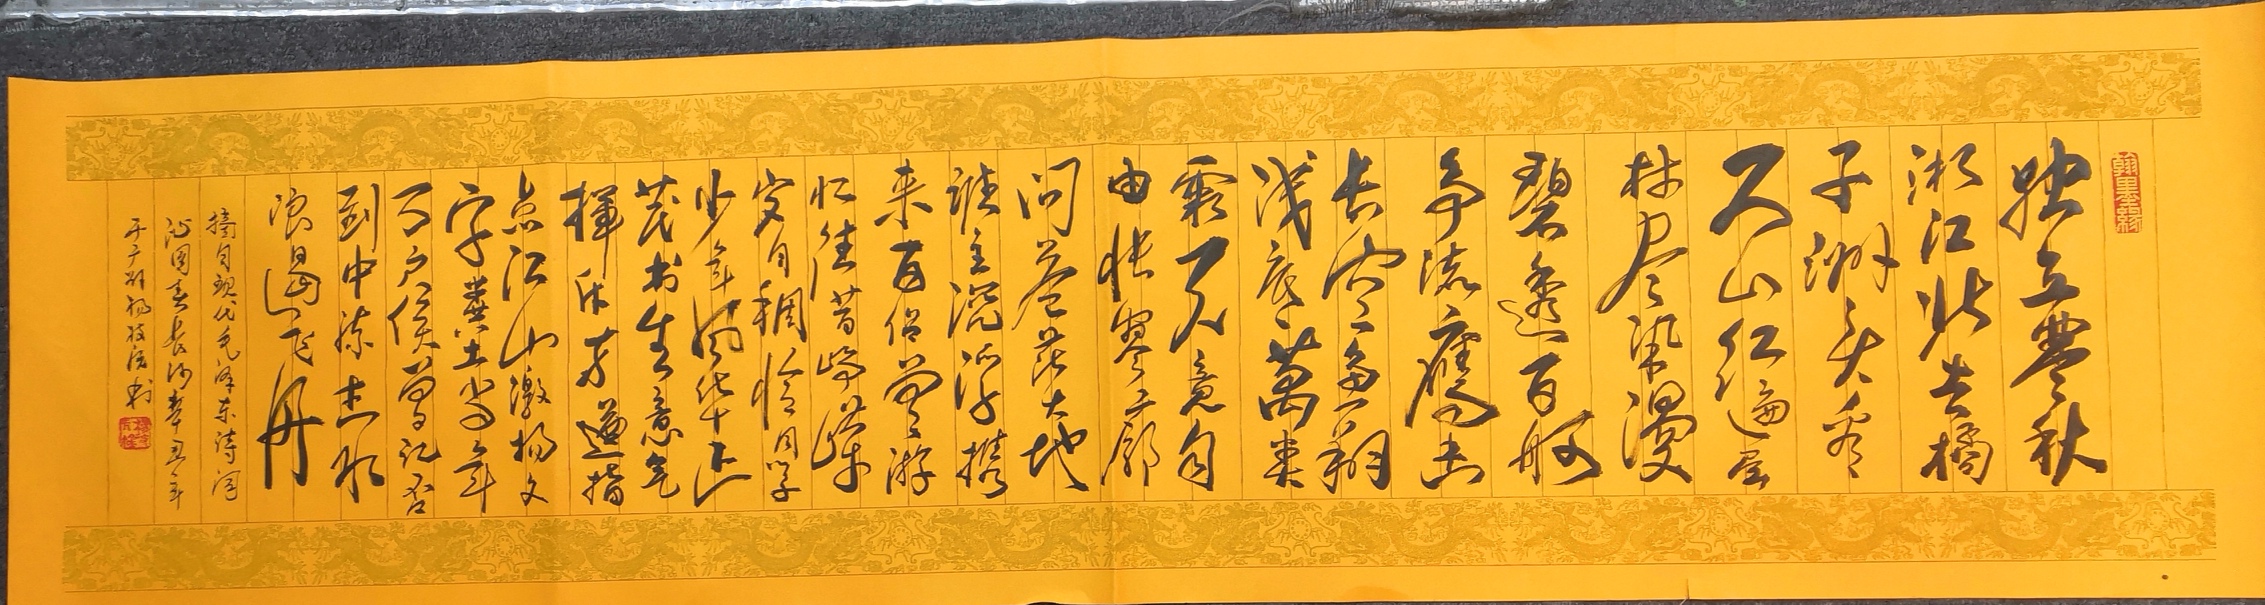 翰墨缘
独立寒秋
湘江北去橘
子洲头看
万山红遍层
林尽染漫
碧透百舸
争流鹰击
长空鱼翔
浅底萬类
霜天竞自
由怅寥廓
问苍茫大地
谁主沉浮携
来百侣曾游
忆往昔峥嵘
岁月稠恰同学
少年风华正
茂书生意气
挥斥方遒指
点江山激扬文
字粪土当年
万户侯曾记否
到中流击水
浪遏飞舟
摘自现代毛泽东诗词
沁园春长沙辛丑年
于广州杨